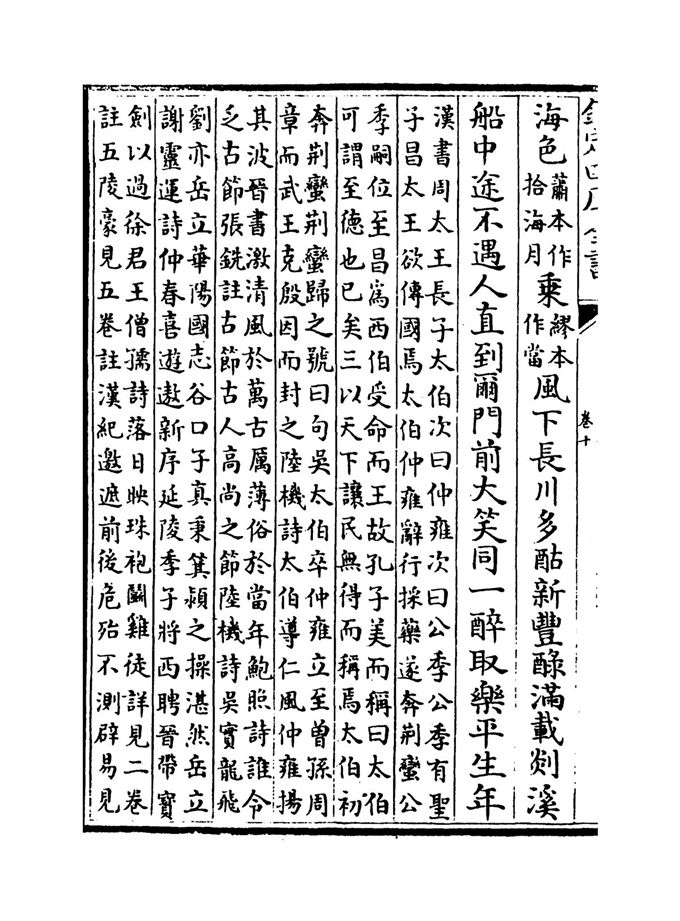 卷十
海色蕭本作拾海月乘繆本作當風下長川多酤新豐醁滿載剡溪
船中途不遇人直到爾門前大笑同一醉取樂平生年
漢書周太王長子太伯次曰仲雍次曰公季公季有聖
子昌太王欲傳國焉太伯仲雍辭行採藥遂奔荆蠻公
季嗣位至昌爲西伯受命而王故孔子美而稱曰太伯
可謂至德也已矣三以天下讓民無得而稱焉太伯初
奔荆蠻荆蠻歸之號曰句吳太伯卒仲雍立至曾孫周
章而武王克殷因而封之陸機詩太伯導仁風仲雍揚
其波晉書激清風於萬古厲薄俗於當年鮑照詩誰令
乏古節張銑註古節古人高尚之節陸機詩吳實龍飛
劉亦岳立華陽國志谷口子真秉箕潁之操湛然岳立
謝靈運詩仲春喜遊遨新序延陵季子將西聘晉帶寶
劍以過徐君王僧孺詩落日映珠袍鬭雞徒詳見二卷
註五陵豪見五卷註漢紀邀遮前後危殆不測辟易見